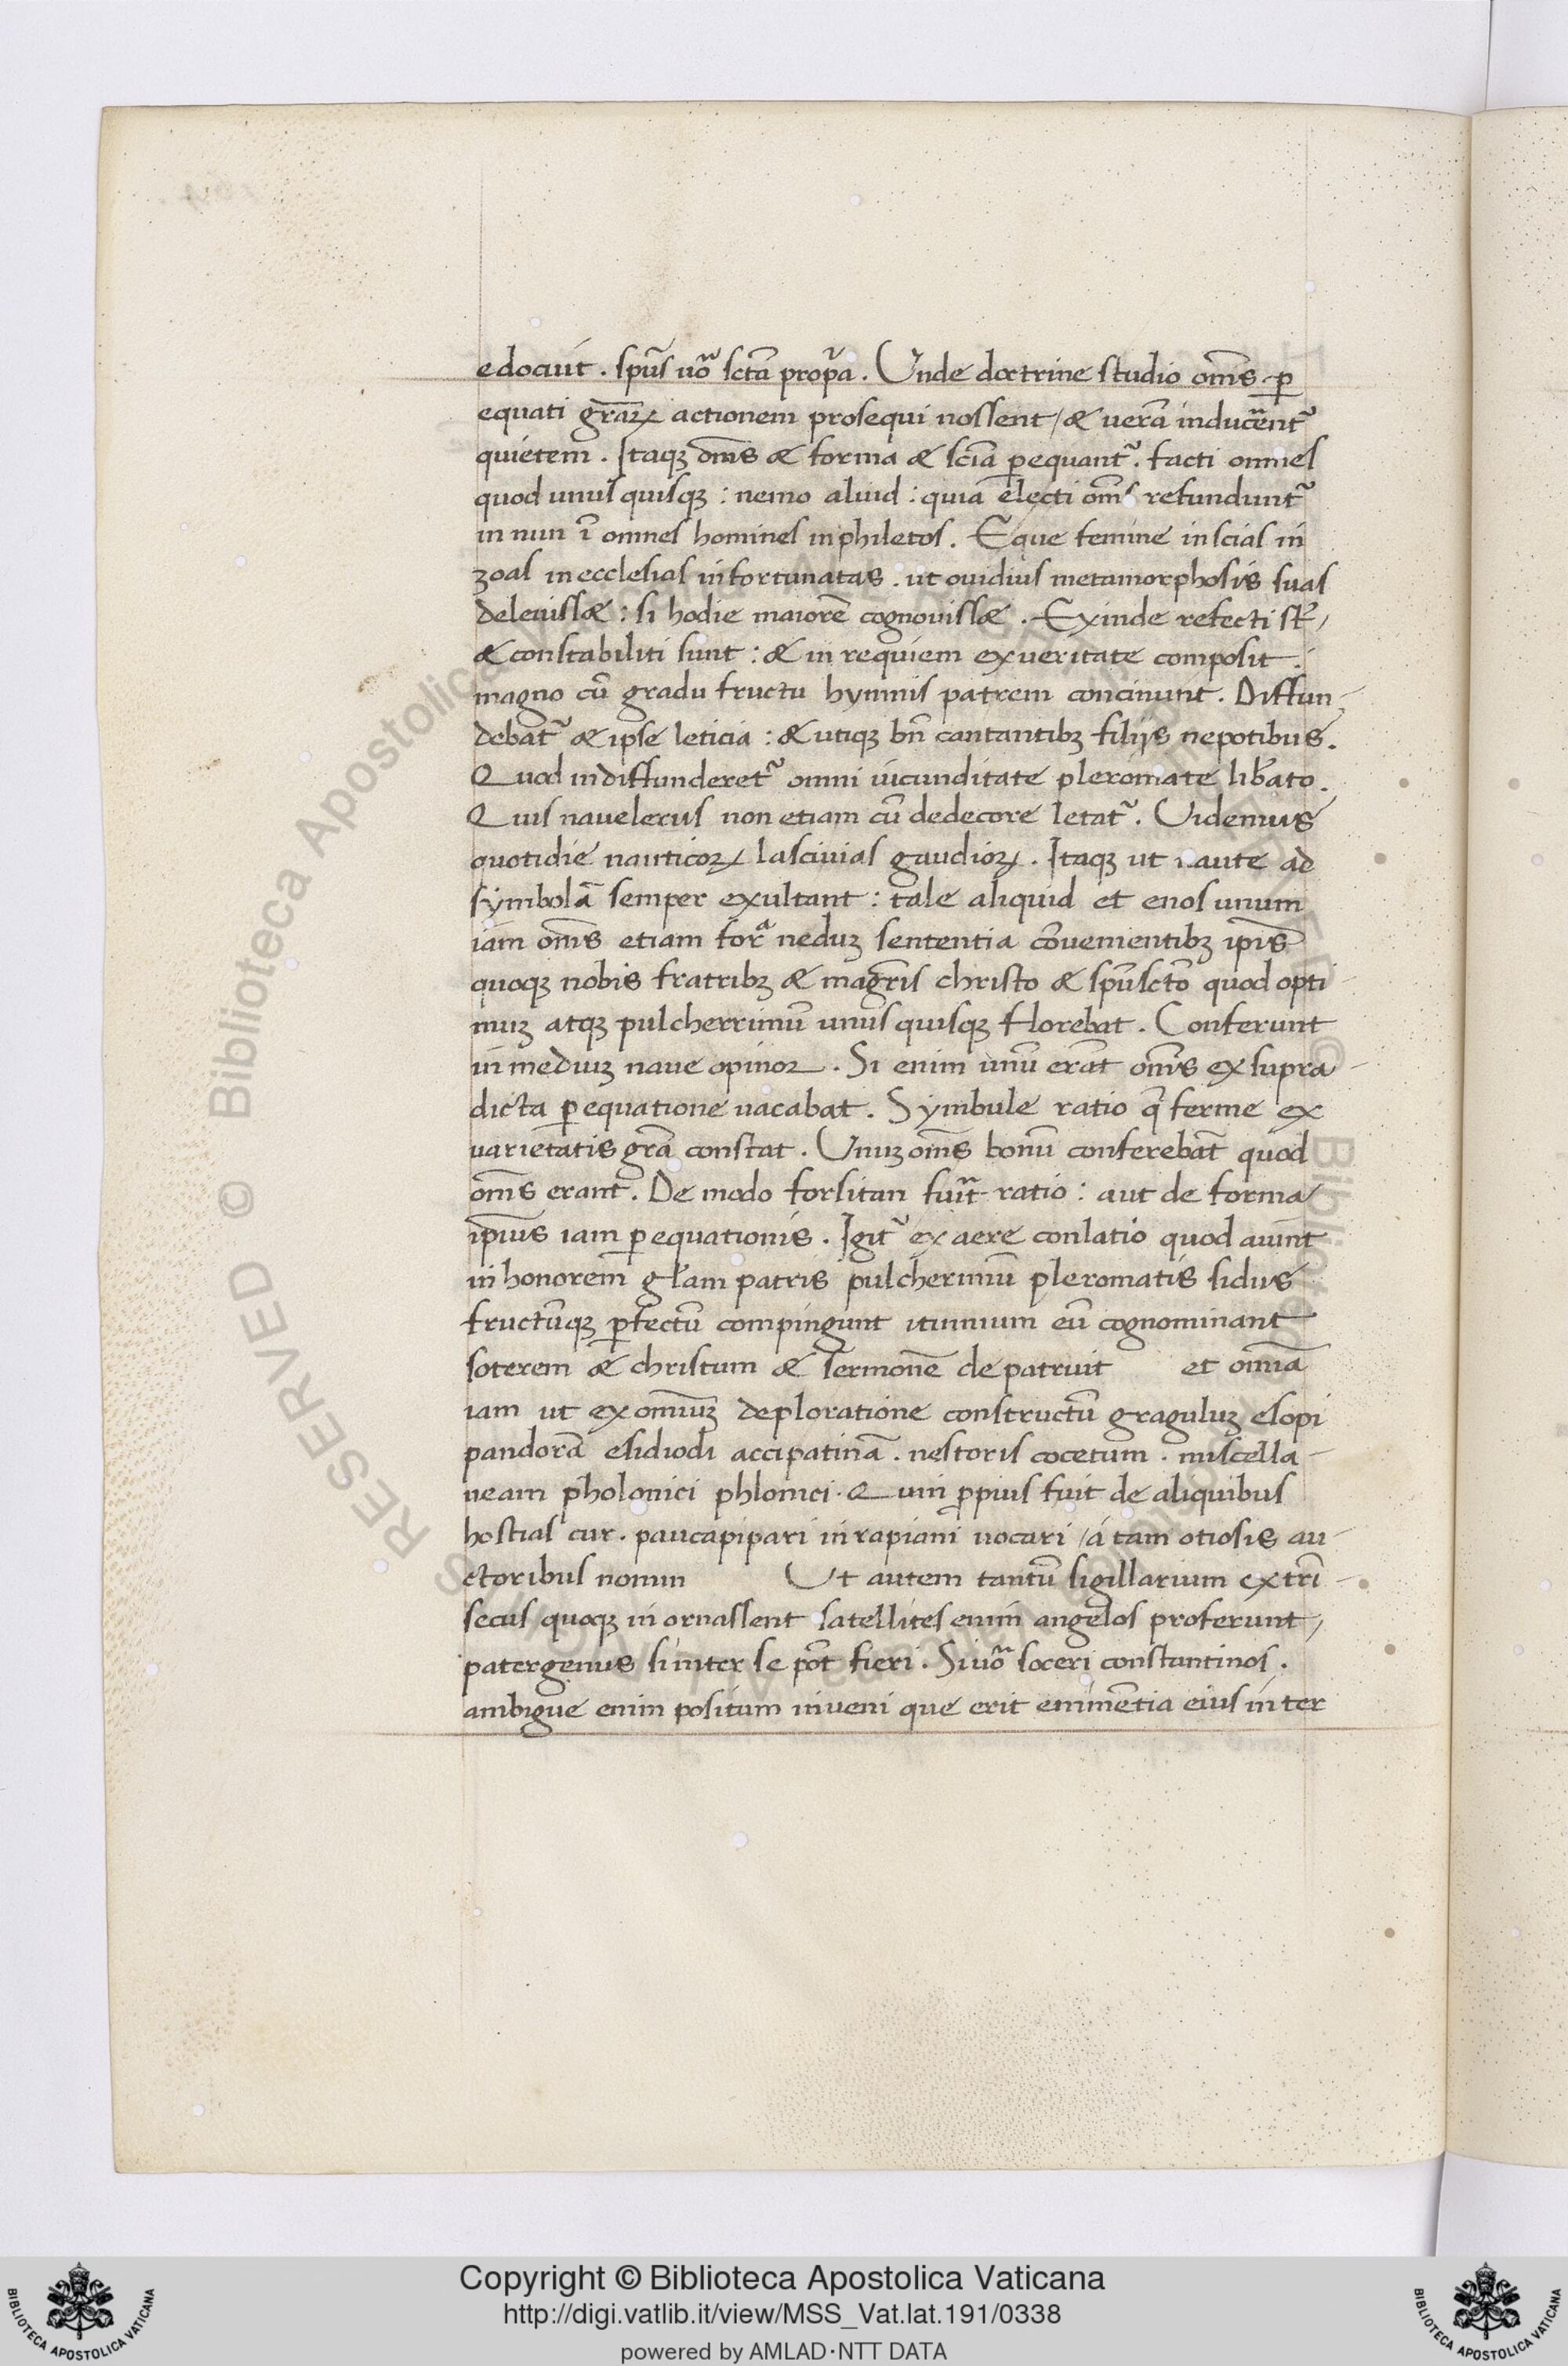 edocuit . sp̃us uõ sctã prop̃a . Unde doctrine studio om̃s p̱
equati gr̃aꝝ actionem prosequi nossent / & uerã inducẽntᷣ
quietem . Itaqꝫ om̃s & forma & sciã p̱equantᷣ . facti omnes
quod unus quisqꝫ : nemo aliud : quia electi om̃s refunduntᷣ
in nun ĩ omnes homines inphiletos . Eque femine inscias in
zoas in ecclesias infortunatas . ut ouidius metamorphosis suas
deleuiss& : si hodie maiorẽ cognouiss& . Exinde refecti st̃ /
& constabiliti sunt : & in requiem ex ueritate composit .
magno cũ gradu fructu hymnis patrem concinunt . Diffun-
debatᷣ & ipse leticia : & utiqꝫ bñ cantantibꝫ filijs nepotibus .
Quod indiffunderetᷣ omni iucunditate pleromate lib̃ato .
Quis nauelerus non etiam cũ dedecore letatᷣ . Uidemus
quotidie nauticoꝝ lasciuias gaudioꝝ . Itaqꝫ ut naute ad
symbolã semper exultant : tale aliquid et enos unum
iam om̃s etiam forᵃ neduꝫ sententia cõuenientibꝫ ip̃is
quoqꝫ nobis fratribꝫ & magr̃is christo & sp̃uscto quod opti
muꝫ atqꝫ pulcherrimũ unus quisqꝫ florebat . Conferunt
in mediuꝫ naue opinor . Si enim unũ erãt om̃is ex supra-
dicta p̱equatione uacabat . Symbule ratio q̃ ferme ex
uarietatis gr̃a constat . Unuꝫ om̃s bonũ conferebãt quod
om̃s erant . De modo forsitan fuit ratio : aut de forma
ip̃ius iam p̱equationis . Igitᷣ ex aere conlatio quod aiunt
in honorem gl̃am patris pulcherimũ pleromatis sidus
fructũqꝫ p̱fectũ compingunt itumium eũ cognominant
soterem & christum & sermonẽ de patruit et om̃ia
iam ut ex omĩuꝫ deploratione constructũ graguluꝫ esopi
pandorã esidiodi accipatinã . nestoris cocetum . miscella-
neam pholonici phlonici . Quin p̱pius fuit de aliquibus
hostias cur . paucapipari inrapiani uocari / a tam otiosis au-
ctoribus nomin Ut autem tantũ sigillarium extrĩ-
secus quoqꝫ in ornassent satellites enim angelos proferunt /
patergenus si inter se põt fieri . Si uõ soceri constantinos .
ambigue enim positum inueni que erit eminẽtia eius inter
Copyright © Biblioteca Apostolica Vaticana
http://digi.vatlib.it/view/MSS_Vat.lat.191/0338
powered by AMLAD·NTT DATA